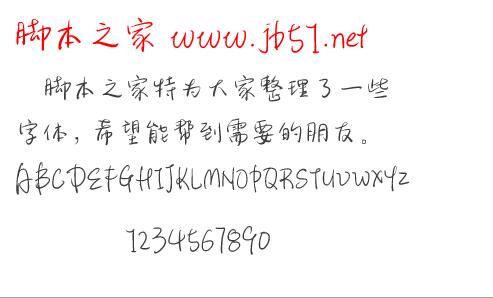 脚本之家 www.jb51.net
脚本之家特为大家整理了一些
字体，希望能帮到需要的朋友。
ABCDEFGHIJKLMNOPQRSTUVWXYZ
1234567890